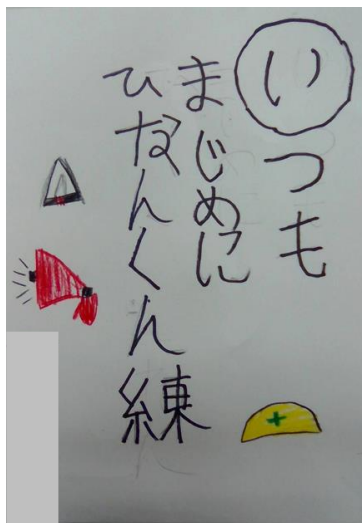 いつも
まじめに
ひなんくん練